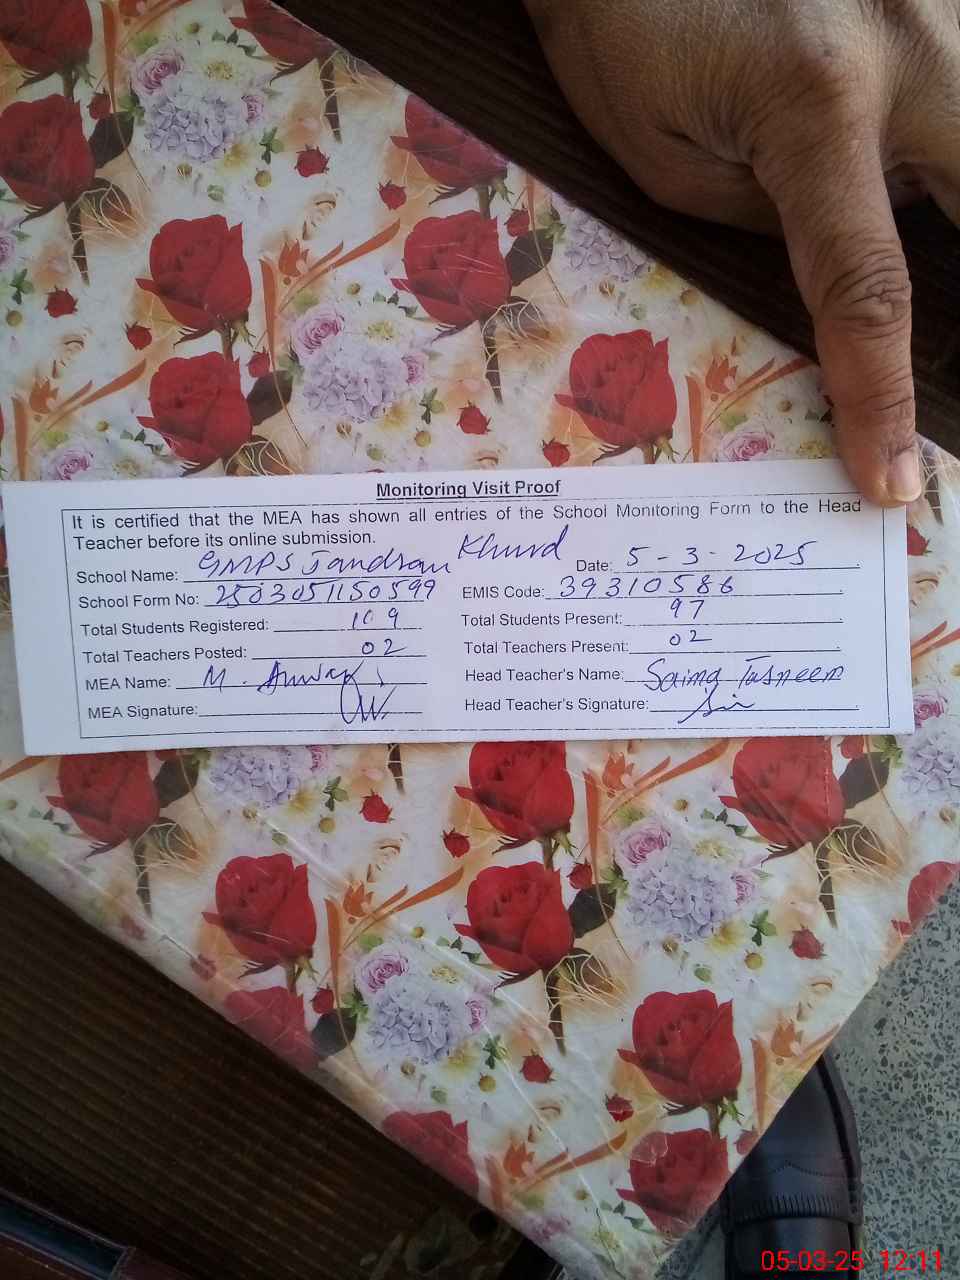 Monitoring Visit Proof
It is certified that the MEA has shown all entries of the School Monitoring Form to the Head
Teacher before its online submission.
School Name: GMPS Jandran Khurd Date: 5 - 3 - 2025
School Form No: 2503051150599 EMIS Code: 39310586
Total Students Registered: 109 Total Students Present: 97
Total Teachers Posted: 02 Total Teachers Present: 02
MEA Name: M. Anwar Head Teacher's Name: Saima Tasneem
MEA Signature: Head Teacher's Signature:
05-03-25 12:11